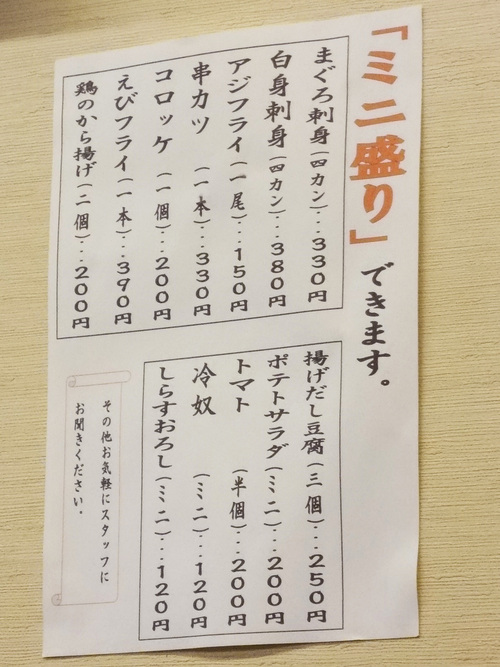 「ミニ盛り」できます。
まぐろ刺身(四カン)…330円
白身刺身(四カン)…380円
アジフライ(一尾)…150円
串カツ(一本)…330円
コロッケ(一個)…200円
えびフライ(一本)…390円
鶏のから揚げ(二個)…200円
揚げだし豆腐(三個)…250円
ポテトサラダ(ミニ)…200円
トマト(半個)…200円
冷奴(ミニ)…120円
しらすおろし(ミニ)…120円
その他お気軽にスタッフに
お聞きください。